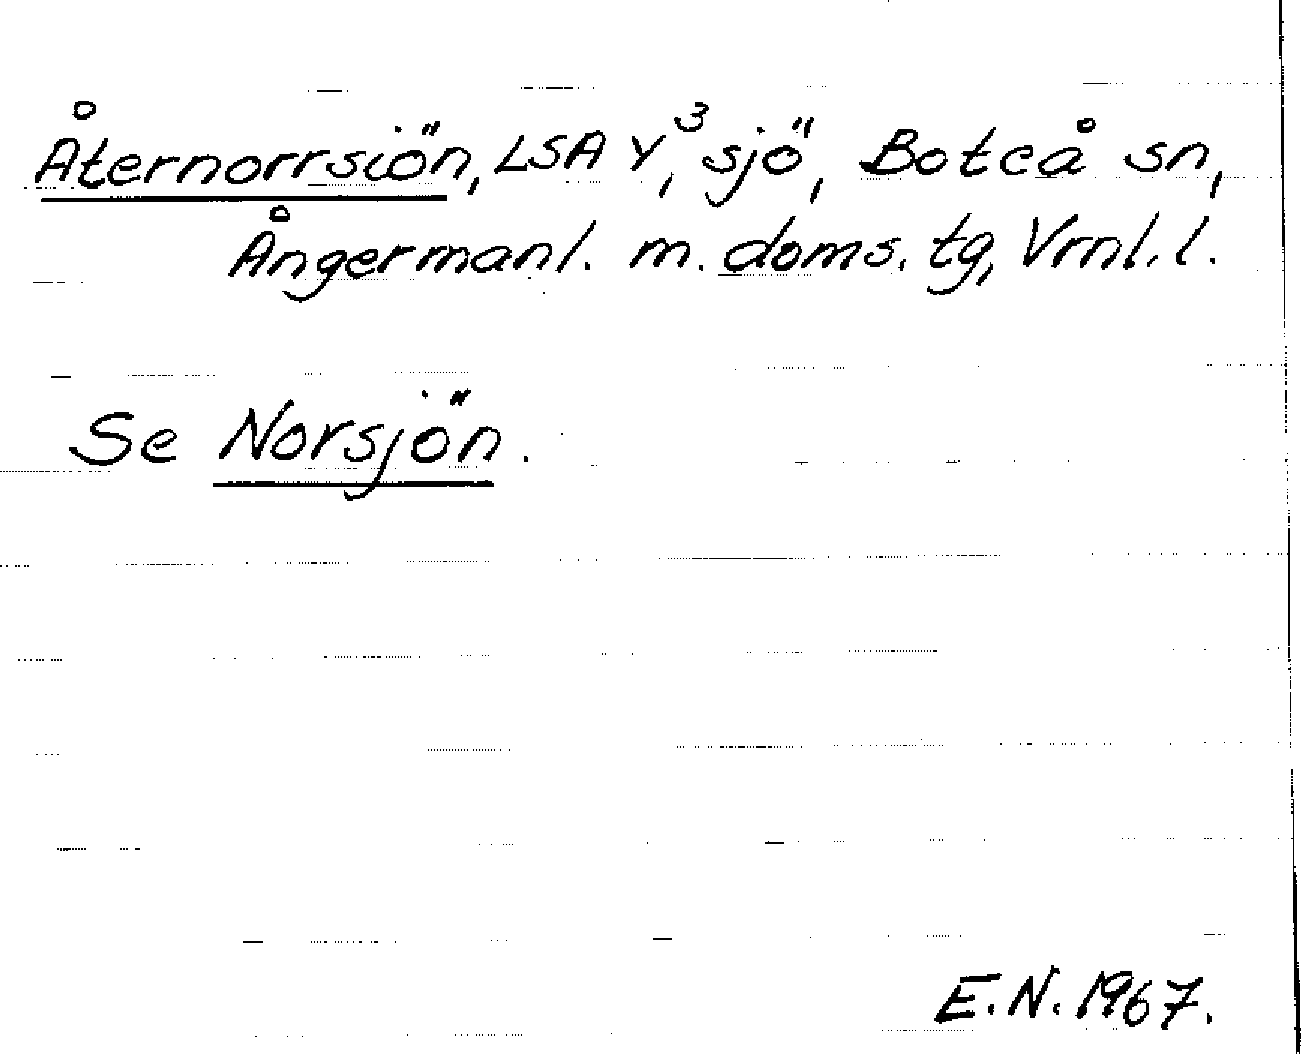 Åternorrsiön, LSA Y³, sjö, Boteå sn,
Ångermanl. m. doms. tg, Vrnl. l.
Se Norsjön.
E.N. 1967.